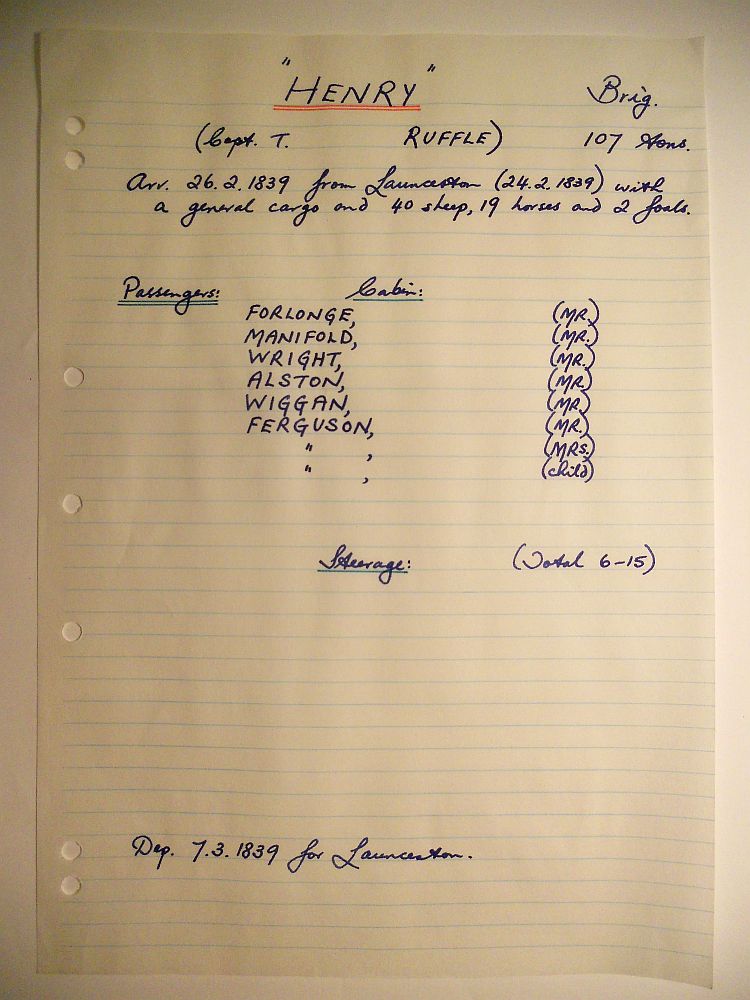 "HENRY" Brig.
(Capt. T. RUFFLE) 107 tons.
Arr. 26.2.1839 from Launceston (24.2.1839) with
a general cargo and 40 sheep, 19 horses and 2 foals.
Passengers: Cabin:
FORLONGE, (MR.)
MANIFOLD, (MR.)
WRIGHT, (MR.)
ALSTON, (MR.)
WIGGAN, (MR.)
FERGUSON, (MR.)
" , (MRS.)
" , (child)
Steerage: (Total 6-15)
Dep. 7.3.1839 for Launceston.